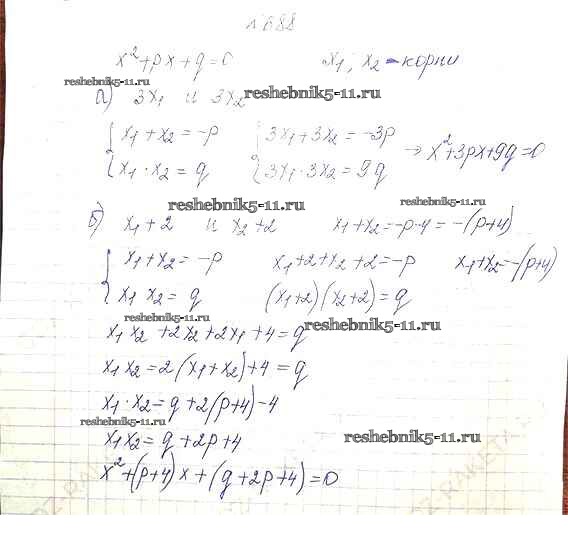 №688
x²+px+q=0 x₁; x₂ - корни
reshebnik5-11.ru reshebnik5-11.ru
а) 3x₁ и 3x₂
{ x₁+x₂=-p { 3x₁+3x₂=-3p
x₁·x₂=q 3x₁·3x₂=9q → x²+3px+9q=0
reshebnik5-11.ru reshebnik5-11.ru
б) x₁+2 и x₂+2 x₁+x₂=-p-4=-(p+4)
{ x₁+x₂=-p x₁+2+x₂+2=-p x₁+x₂=-(p+4)
x₁ x₂=q (x₁+2)(x₂+2)=q
reshebnik5-11.ru
x₁x₂+2x₂+2x₁+4=q
reshebnik5-11.ru
x₁x₂=2(x₁+x₂)+4=q
x₁·x₂=q+2(p+4)-4
reshebnik5-11.ru
x₁x₂=q+2p+4
reshebnik5-11.ru
x²+(p+4)x+(q+2p+4)=0